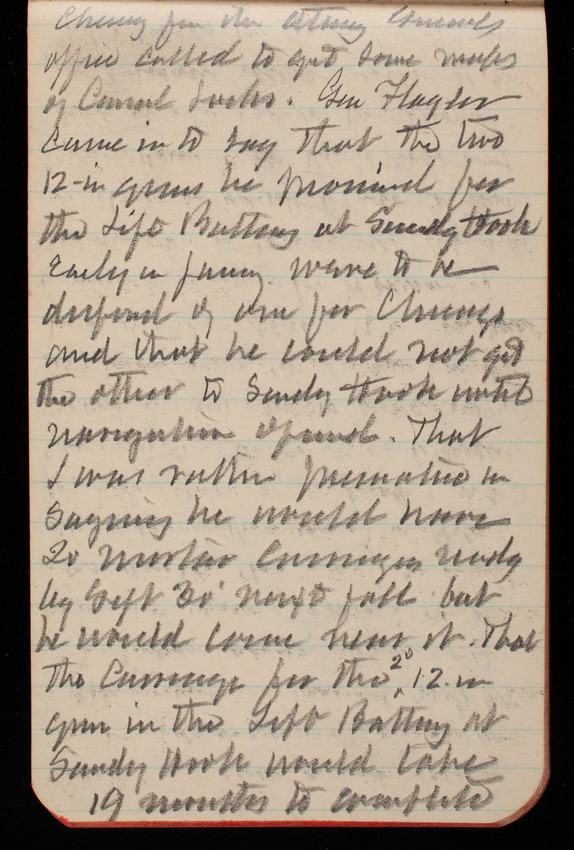 from the Attorney Generals
office called to get some maps
of Canal Locks. Gen Flagler
came in to say that the two
12-in guns he promised for
the Lift Battery at Sandy Hook
Early in Jany were to be
disposed of one for Chicago
and that he could not get
the other to Sandy Hook until
navigation opened. That
I was rather premature in
saying he would have
20 Mortar Carriages ready
by Sept 30' next fall but
he would come near it. That
the Carriage for the 20 12-in
gun in the Lift Battery at
Sandy Hook would take
19 months to complete